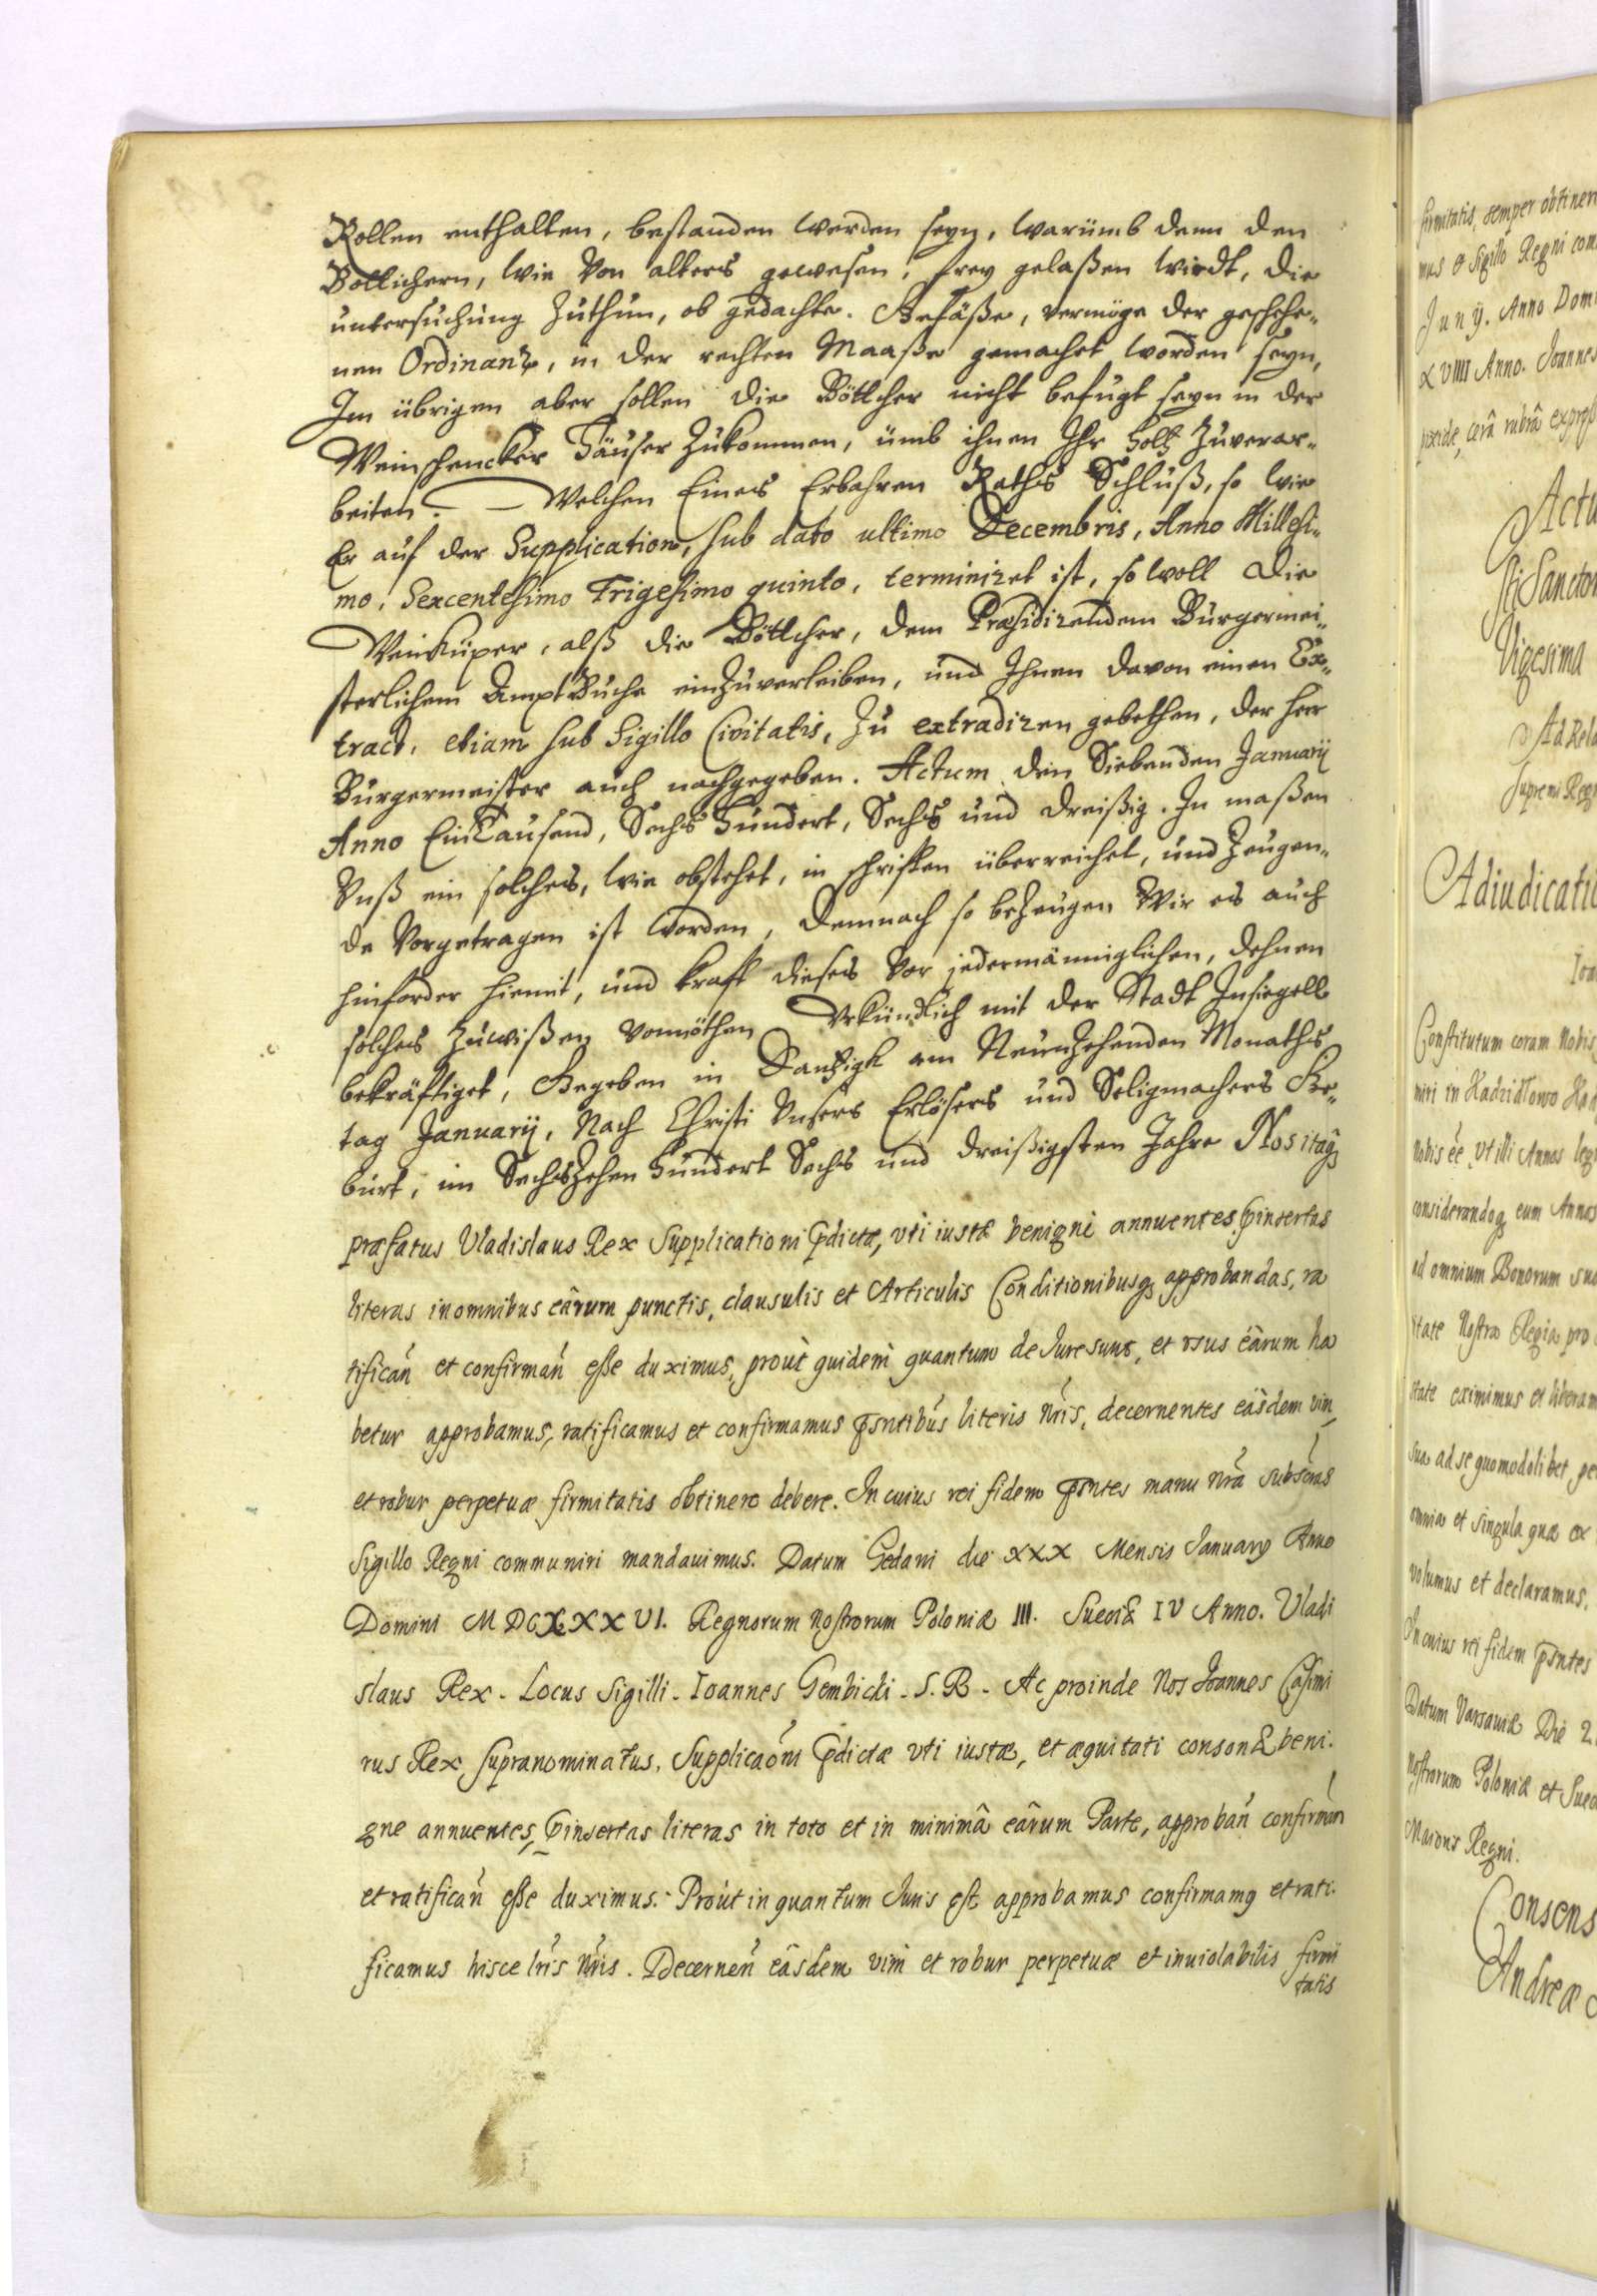 Rollen enthalten, bestanden werden seyn, warümb denn den
Böttichern, wie Von alters gewesen, frey gelaßen wirdt, die
untersuchung Zuthun, ob gedachte. Gefäße, vermöge der geschehe-
nen Ordinantz, in der rechten Maaße gemachet worden seyn,
Im übrigen aber sollen die Böttcher nicht befugt seyn in der
Weinschencker Häuser Zukommen, ümb ihnen Ihr Holtz Zuverar-
beiten. — Welchen Eines Erbahren Raths Schluß, so wie
Er auf der Supplication, sub dato ultimo Decembris, Anno Millesi-
mo, Sexcentesimo Trigesimo quinto, terminiret ist, so woll die
Weinküper, alß die Böttcher, dem Præsidirendem Bürgermei-
sterlichem AmptBuche einzuverleiben, und Ihnen davon einen Ex-
tract, etiam sub Sigillo Civitatis, Zu extradiren gebethen, der Herr
Bürgermeister auch nachgegeben. Actum den Siebenden Januarij
Anno EinTausend, Sechs Hundert, Sechs und dreißig. In maßen
Vnß ein solches, wie obstehet, in schriften überreichet, und Zeugen-
de Vorgetragen ist worden, Demnach so beZeugen Wir es auch
hinforder hiemit, und kraft dieses Vor jedermänniglichen, dehnen
solches Zuwißen vonnöthen Vrkündlich mit der Stadt Insiegell
bekräftiget, Gegeben in Dantzigk am NeunZehenden Monaths
tag Januarij, Nach Christi Vnsers Erlösers und Seligmachers Ge-
burt, im SechsZehen Hundert Sechs und dreißigsten Jahre Nos itaq
præfatus Vladislaus Rex Supplicationi pdictæ, vti iustæ benignè annuentes pinsertas
literas in omnibus eârum punctis, clausulis et Articulis Conditionibusq approbandas, ra
tifican et confirman esse duximus, proùt quidem quantum de Jure sunt, et vsus eârum ha
betur approbamus, ratificamus et confirmamus psntibus literis nris, decernentes eâsdem vim
et robur perpetuæ firmitatis obtinere debere. In cuius rei fidem psntes manu nra subscras
Sigillo Regni communiri mandauimus. Datum Gedani die XXX Mensis Januarij Anno
Domini MDCXXXVI. Regnorum nostrorum Poloniæ III. Sueciæ IV Anno. Vladi
slaus Rex - Locus Sigilli - Ioannes Gembicki - S. R - Ac proinde Nos Joannes Casimi
rus Rex supranominatus, Supplicaoni pdictæ vti iustæ, et æquitati consonæ beni.
gne annuentes, pinsertas literas in toto et in minimâ eârum Parte, approban confirman
et ratifican esse duximus. Proùt in quantum Juris est approbamus confirmamq et rati.
ficamus hisce lris nris. Decernen eâsdem vim et robur perpetuæ et inuiolabilis firmi
tatis
firmitatis, semper obtiner
mus & Sigillo Regni com
Junij. Anno Dom
XVIII Anno. Joannes
pixide, cerâ rubrâ expres
Actu
sti Sanctor
Vigesima
Ad Rela
Supremi Reg
Adiudicatio
Ioa
Constitutum coram Nobis
Nobis eé, vt illi Annos leg
considerandoq eum Annos
ad omnium Bonorum sua
itate Nostra Regia pro
state eximimus et liberam
sua ad se quomodolibet, pe
omnia et singula quæ ex
volumus et declaramus.
In cuius rei fidem psntes
Datum Varsauiæ Die 2.
nostrorum Poloniæ et Suec
Maioris Regni.
Consens
Andreæ